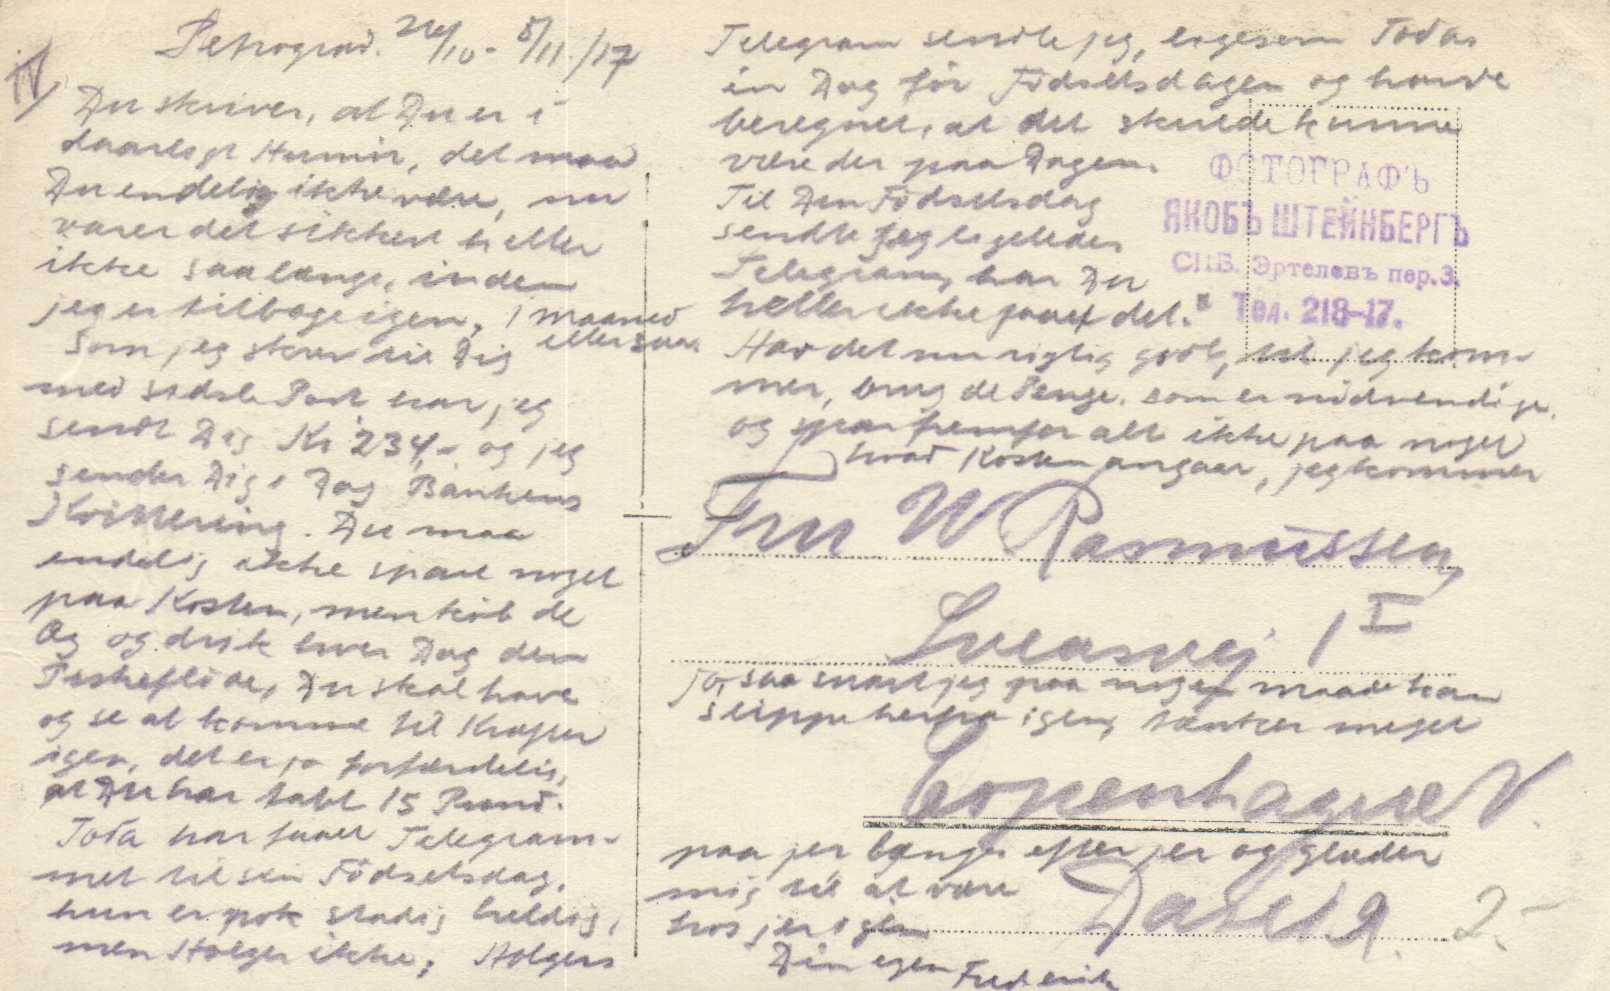 IV
Petrograd. 24/10 - 5/11/17
Du skriver, at Du er i
daarligt Humör, det maa
Du endelig ikke være, nu
varer det sikkert heller
ikke saa længe, inden
jeg er tilbage igen, 1 Maaned
eller saa.
Som jeg skrev til Dig
med sidste Post har jeg
sendt Dig Kr 234,- og jeg
sender Dig i Dag Bankens
Kvittering. Du maa
endelig ikke spare noget
paa Kosten, men köb de
Æg og drik hver Dag den
Piskeflöde, Du skal have
og se at komme til Kræfter
igen, det er jo forfærdelig,
at Du har tabt 15 Pund.
Toda har faaet Telegram-
met til sin Födselsdag,
hun er nok stadig heldig,
men Holger ikke, Holgers
Telegram sendte jeg, ligesom Todas
en Dag för Födselsdagen og havde
beregnet, at det skulde kunne
være der paa Dagen.
Til Din Födselsdag
sendte jeg ligeledes
Telegram, har Du
heller ikke faaet det.
Hav det nu rigtig godt, til jeg kom-
mer, brug de Penge, som er nödvendige,
og spar fremfor alt ikke paa noget
hvad Kosten angaar, jeg kommer
ФОТОГРАФЪ
ЯКОБЪ ШТЕЙНБЕРГЪ
СПБ. Эртелевъ пер. 3.
Тел. 218-17.
Fru W Rasmussen,
Lucasvej 1 I
jo, saa snart jeg paa nogen maade kan
slippe herfra igen, tænker meget
Copenhague V.
paa jer længes efter jer og glæder
mig til at være
hos jer igen
Din egen Frederik
2.-